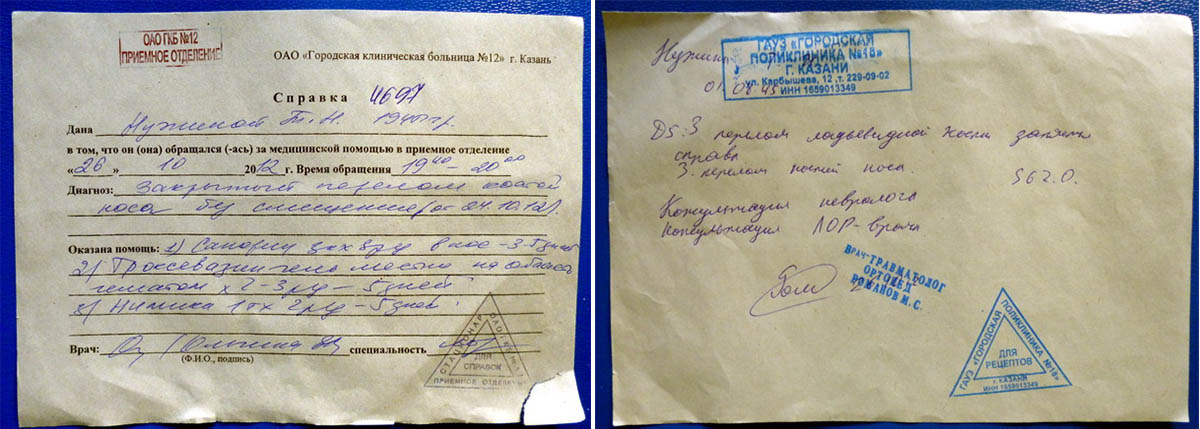 ОАО ГКБ №12
ПРИЕМНОЕ ОТДЕЛЕНИЕ
ОАО «Городская клиническая больница №12» г. Казань
Справка 4697
Дана Нужиной Т.Н. 1945 гр.
в том, что он (она) обращался (-ась) за медицинской помощью в приемное отделение
«26» 10 2012 г. Время обращения 19 40 – 20 00
Диагноз: Закрытый перелом костей
носа без смещения (от 24.10.12).
Оказана помощь: 1) в нос – 3-5 дней
2) Троксевазин гель местно на область
гематом х 2-3 р/д – 5 дней
3) 1 т х 2 р/д – 5 дней
Врач: специальность
(Ф.И.О., подпись)
СТАЦИОНАР
ДЛЯ
СПРАВОК
ПРИЕМНОЕ ОТДЕЛЕНИЕ
ГАУЗ «ГОРОДСКАЯ
ПОЛИКЛИНИКА №18»
Г. КАЗАНИ
ул. Карбышева, 12, т. 229-09-02
ИНН 1659013349
DS: З перелом ладьевидной кости запястья
справа
З. перелом костей носа. S62.0.
Консультация невролога
Консультация ЛОР-врача
ВРАЧ-ТРАВМАТОЛОГ
ОРТОПЕД
РОМАНОВ М.С.
ГАУЗ «ГОРОДСКАЯ ПОЛИКЛИНИКА №18»
ДЛЯ
РЕЦЕПТОВ
г. КАЗАНИ
ИНН 1659013349